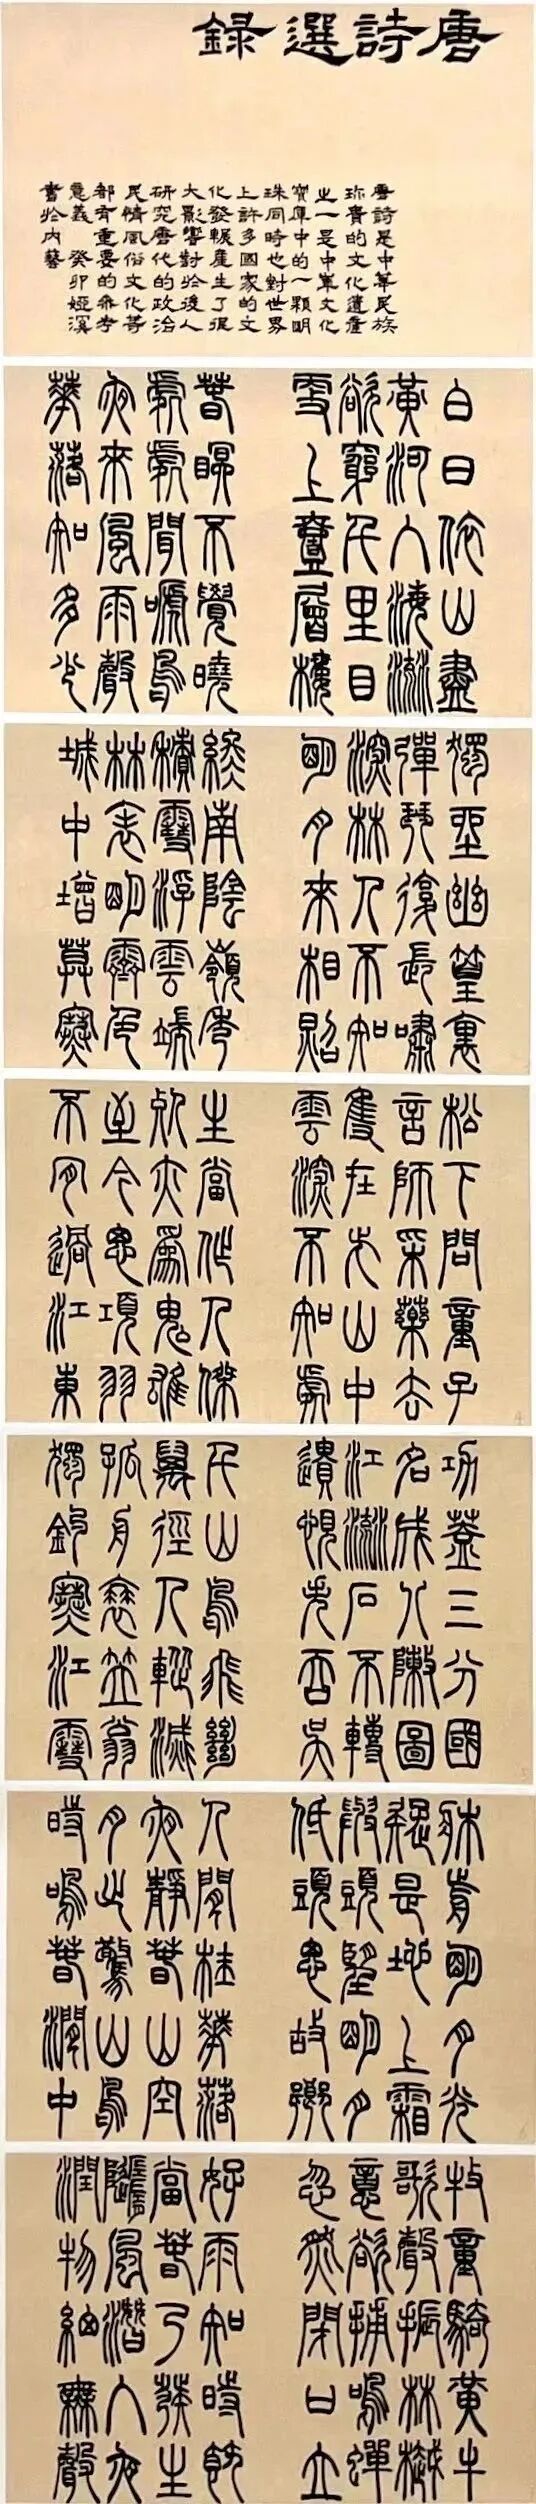 唐詩選錄
唐詩是中華民族
珍貴的文化遺產
之一是中華文化
寶庫中的一顆明
珠同時也對世界
上許多國家的文
化發輾產生了很
大影響對於後人
研究唐代的政治
民情風俗文化等
都有重要的參考
意義 癸卯婭溟
書於內藝
白日依山盡
黃河入海流
欲窮千里目
更上壹層樓
春眠不覺曉
處處聞啼鳥
夜來風雨聲
華落知多少
獨坐幽篁裏
彈琴復長嘯
深林人不知
明月來相照
終南陰嶺秀
積雪浮雲端
林表明霽色
城中增暮寒
松下問童子
言師采藥去
隻在此山中
雲深不知處
生當作人傑
死亦為鬼雄
至今思項羽
不肯過江東
功蓋三分國
名成八陣圖
江流石不轉
遺恨失吞吳
千山鳥飛絕
萬徑人蹤滅
孤舟蓑笠翁
獨釣寒江雪
牀前明月光
疑是地上霜
舉頭望明月
低頭思故鄉
人閒桂華落
夜靜春山空
月出驚山鳥
時鳴春澗中
牧童騎黃牛
歌聲振林樾
意欲捕鳴蟬
忽然閉口立
好雨知時節
當春乃發生
隨風潛入夜
潤物細無聲